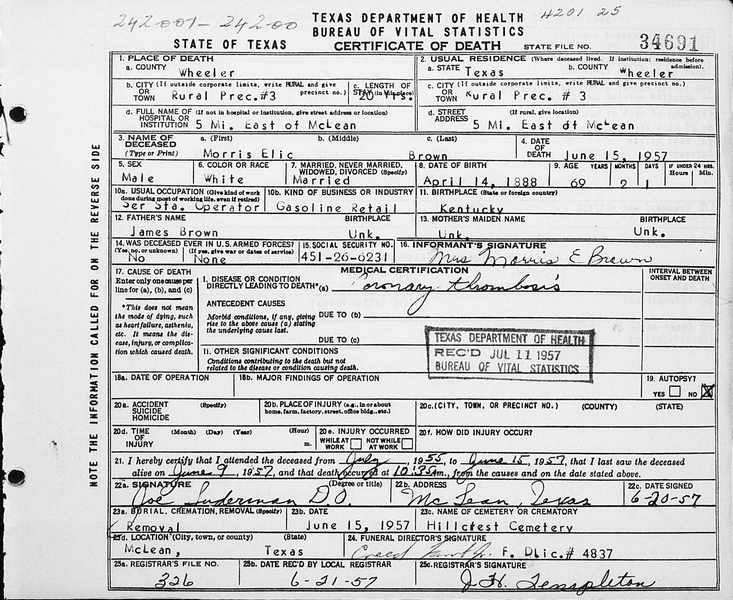 242-001- 242-00
TEXAS DEPARTMENT OF HEALTH
4201 25
BUREAU OF VITAL STATISTICS
STATE OF TEXAS
CERTIFICATE OF DEATH
STATE FILE NO.
34691
NOTE THE INFORMATION CALLED FOR ON THE REVERSE SIDE
1. PLACE OF DEATH
a. COUNTY
Wheeler
2. USUAL RESIDENCE (Where deceased lived. If institution: residence before admission).
a. STATE
Texas
b. COUNTY
Wheeler
b. CITY (If outside corporate limits, write RURAL and give precinct no.)
OR
TOWN
Rural Prec.#3
c. LENGTH OF
STAY (in this place)
20 Yrs.
c. CITY (If outside corporate limits, write RURAL and give precinct no.)
OR
TOWN
Rural Prec. # 3
d. FULL NAME OF (If not in hospital or institution, give street address or location)
HOSPITAL OR
INSTITUTION
5 Mi. East of McLean
d. STREET
ADDRESS
(If rural, give location)
5 Mi. East of McLean
3. NAME OF
DECEASED
(Type or Print)
a. (First)
b. (Middle)
c. (Last)
Morris Elic
Brown
4. DATE
OF
DEATH
June 15, 1957
5. SEX
Male
6. COLOR OR RACE
White
7. MARRIED, NEVER MARRIED,
WIDOWED, DIVORCED (Specify)
Married
8. DATE OF BIRTH
April 14, 1888
9. AGE
YEARS
MONTHS
DAYS
69
2
1
IF UNDER 24 HRS.
Hours
Min.
10a. USUAL OCCUPATION (Give kind of work
done during most of working life, even if retired)
Ser Sta. Operator
10b. KIND OF BUSINESS OR INDUSTRY
Gasoline Retail
11. BIRTHPLACE (State or foreign country)
Kentucky
12. FATHER'S NAME
BIRTHPLACE
James Brown
Unk.
13. MOTHER'S MAIDEN NAME
BIRTHPLACE
Unk.
Unk.
14. WAS DECEASED EVER IN U.S. ARMED FORCES?
(Yes, no, or unknown)
(If yes, give war or dates of service)
No
None
15. SOCIAL SECURITY NO.
451-26-6231
16. INFORMANT'S SIGNATURE
Mrs Morris E Brown
17. CAUSE OF DEATH
Enter only one cause per
line for (a), (b), and (c)
*This does not mean
the mode of dying, such
as heart failure, asthenia,
etc. It means the dis-
ease, injury, or complica-
tion which caused death.
MEDICAL CERTIFICATION
INTERVAL BETWEEN
ONSET AND DEATH
I. DISEASE OR CONDITION
DIRECTLY LEADING TO DEATH*(a)
Coronary thrombosis
ANTECEDENT CAUSES
Morbid conditions, if any, giving
rise to the above cause (a) stating
the underlying cause last.
DUE TO (b)
DUE TO (c)
II. OTHER SIGNIFICANT CONDITIONS
Conditions contributing to the death but not
related to the disease or condition causing death.
TEXAS DEPARTMENT OF HEALTH
REC'D JUL 11 1957
BUREAU OF VITAL STATISTICS
18a. DATE OF OPERATION
18b. MAJOR FINDINGS OF OPERATION
19. AUTOPSY?
YES NO X
20a. ACCIDENT
SUICIDE
HOMICIDE
(Specify)
20b. PLACE OF INJURY (e.g., in or about
home, farm, factory, street, office bldg., etc.)
20c. (CITY, TOWN, OR PRECINCT NO.)
(COUNTY)
(STATE)
20d. TIME
OF
INJURY
(Month) (Day) (Year)
(Hour)
m.
20e. INJURY OCCURRED
WHILE AT
WORK
NOT WHILE
AT WORK
20f. HOW DID INJURY OCCUR?
21. I hereby certify that I attended the deceased from July 1955, to June 15, 1957, that I last saw the deceased
alive on June 9, 1957, and that death occurred at 10:35am., from the causes and on the date stated above.
22a. SIGNATURE
(Degree or title)
Joe Suderman D.O.
22b. ADDRESS
McLean, Texas
22c. DATE SIGNED
6-20-57
23a. BURIAL, CREMATION, REMOVAL (Specify)
Removal
23b. DATE
June 15, 1957
23c. NAME OF CEMETERY OR CREMATORY
Hillcrest Cemetery
23d. LOCATION (City, town, or county)
(State)
McLean,
Texas
24. FUNERAL DIRECTOR'S SIGNATURE
F. DLic.# 4837
25a. REGISTRAR'S FILE NO.
326
25b. DATE REC'D BY LOCAL REGISTRAR
6-21-57
25c. REGISTRAR'S SIGNATURE
J. H. Templeton